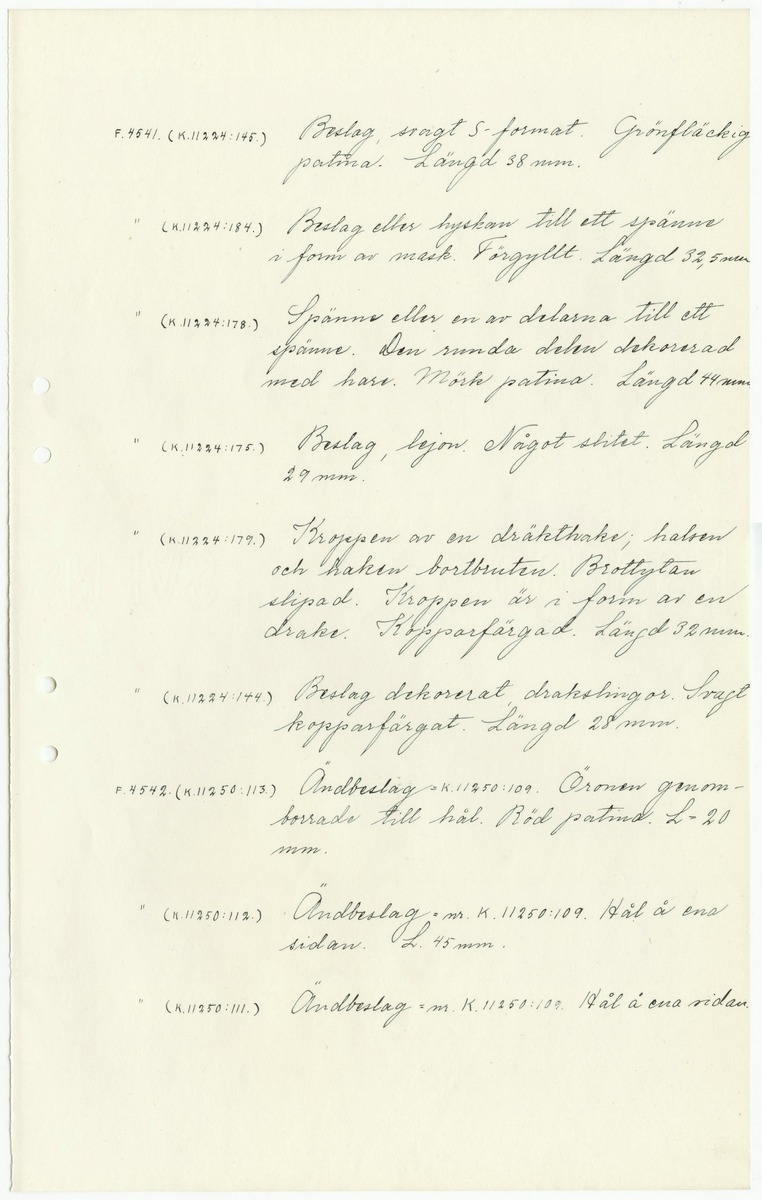 F.4541. (K.11224:145.) Beslag, svagt S-format. Grönfläckig
patina. Längd 38 mm.
" (K.11224:184.) Beslag eller hyskan till ett spänne
i form av mask. Förgyllt. Längd 32,5 mm
" (K.11224:178.) Spänne eller en av delarna till ett
spänne. Den runda delen dekorerad
med hare. Mörk patina. Längd 44 mm.
" (K.11224:175.) Beslag, lejon. Något slitet. Längd
29 mm.
" (K.11224:179.) Kroppen av en dräkthake; halsen
och haken bortbruten. Brottytan
slipad. Kroppen är i form av en
drake. Kopparfärgad. Längd 32 mm.
" (K.11224:144.) Beslag dekorerat, drakslingor. Svagt
kopparfärgat. Längd 28 mm.
F.4542. (K.11250:113.) Ändbeslag = K.11250:109. Öronen genom-
borrade till hål. Röd patina. L = 20
mm.
" (K.11250:112.) Ändbeslag = nr. K.11250:109. Hål å ena
sidan. L. 45 mm.
" (K.11250:111.) Ändbeslag = nr. K.11250:109. Hål å ena sidan.